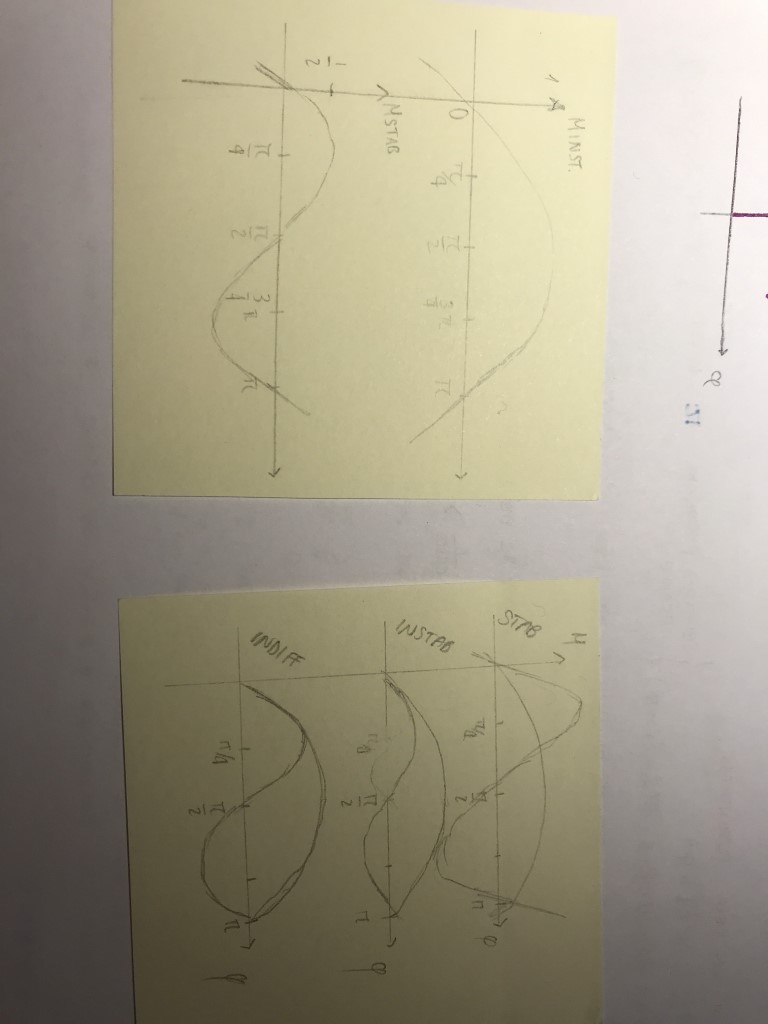 M INST.
1
0
π/4
π/2
3/4 π
π
M STAB
1/2
π/4
π/2
3/4 π
π
φ
M
STAB
π/4
π/2
π
φ
INSTAB
π/4
π/2
π
φ
INDIFF
π/4
π/2
π
φ